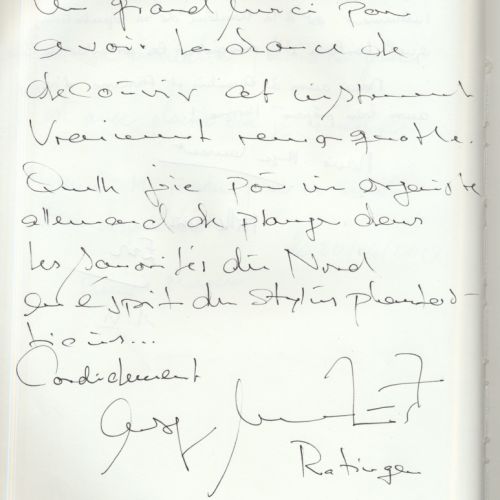 Un grand merci pour
avoir la chance de
découvrir cet instrument
vraiment remarquable.
Quelle joie pour un organiste
allemand de plonger dans
les sonorités du Nord
en esprit du stylus phantas-
ticus...
Cordialement
Ratingen